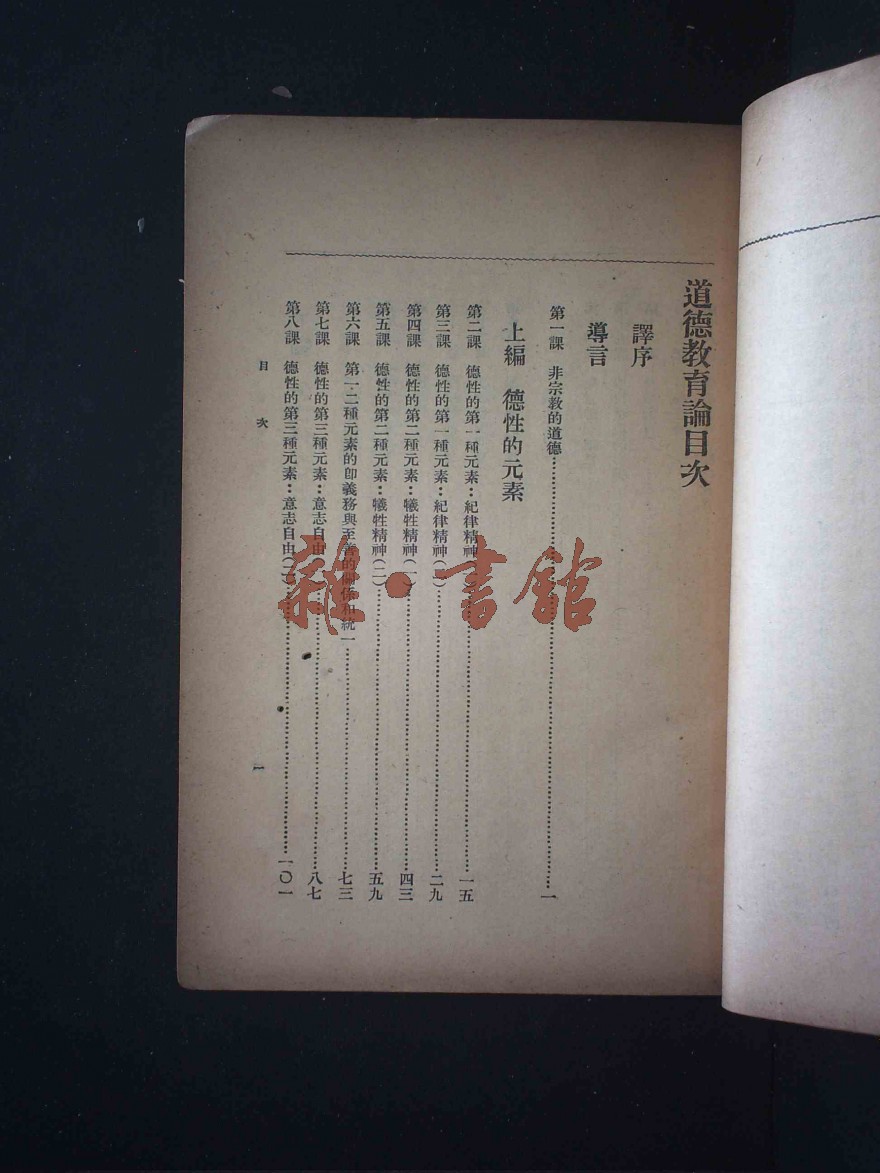 道德教育論目次
譯序
導言
第一課 非宗教的道德……一
上編 德性的元素
第二課 德性的第一種元素：紀律精神……一五
第三課 德性的第一種元素：紀律精神……二九
第四課 德性的第二種元素：犧牲精神（一）……四三
第五課 德性的第二種元素：犧牲精神（二）……五九
第六課 第一二種元素的卽義務與至善的關係和統一……七三
第七課 德性的第三種元素：意志自由……八七
第八課 德性的第三種元素：意志自由……一〇一
目次
一
雜·書館